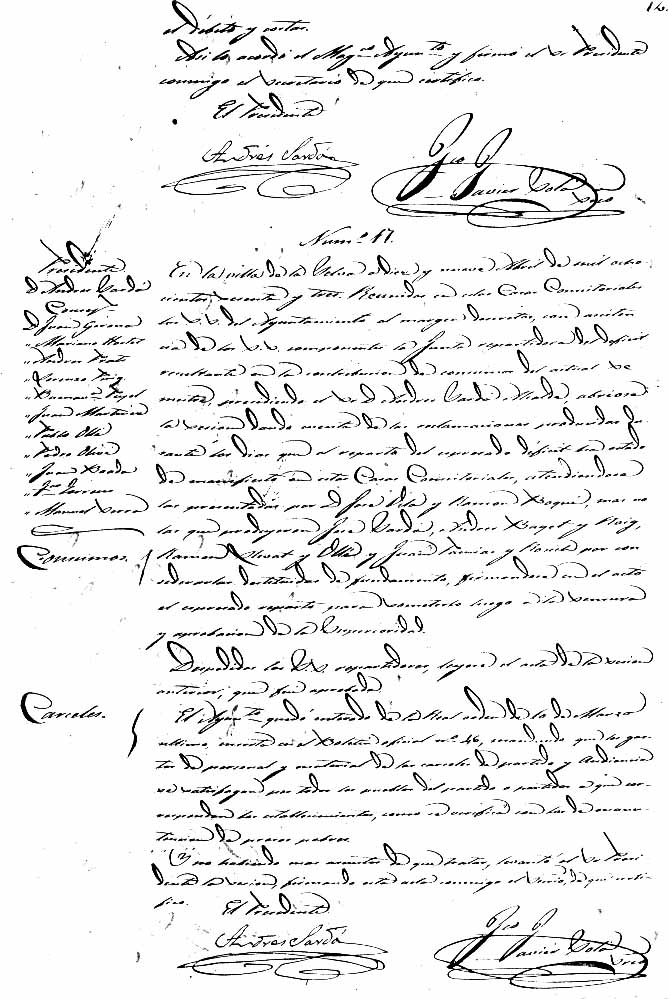 12.
el débito y costas.
Así lo acordó el Mag.co Ayunt.to y firmó el Sr. Presidente
conmigo el Secretario de que certifico.
El Presidente
Andrés Sardá
Fco J.
Javier
Srio
Num.o 17.
Presidente
D. Andres Sardá
Concej.
D. Juan
" Mariano
" Andres Prats
" Lorenzo Puig
" Juan Martinez
" Pablo Ollé
" Pedro Oliva
" Juan
" Manuel Serra
En la villa de la Selva a diez y nueve Abril de mil ocho-
cientos y tres. Reunidos en estas Casas Consistoriales
los S.S. del Ayuntamiento al margen descritos, con asisten-
cia de los S.S. componentes la Junta repartidora del deficit
resultante en la contribucion de consumos del actual se-
mestre, presidiendo el Sr. D. Andres Sardá, Alcalde, abriose
la sesion dando cuenta de las reclamaciones producidas du-
rante los dias que el reparto del expresado deficit ha estado
de manifiesto en estas Casas Consistoriales, atendiendose
las presentadas por D. José y Ramon Baqué, mas no
las que produjeron José Sardá, Andres Baget y Roig,
Ramon y Ollé y Juan y por con-
siderarlas destituidas de fundamento, firmandose en el acto
el expresado reparto para someterlo luego a la censura
y aprobacion de la Superioridad.
Consumos.
Despedidos los S.S. repartidores, leyose el acta de la sesion
anterior, que fué aprobada.
Carceles.
El Ayunt.to quedó enterado de la Real orden de 10 de Marzo
ultimo, inserta en el Boletin oficial n.o 46, mandando que los gas-
tos de personal y material de las carceles de partido y Audiencia
se satisfagan por todos los pueblos del partido o partidos a que cor-
respondan los establecimientos, como se verifica con los de manu-
tencion de presos pobres.
Y no habiendo mas asuntos de que tratar, levantó el Sr. Presi-
dente la sesion, firmando esta acta conmigo el Srio, de que certi-
fico.
El Presidente
Andrés Sardá
Fco J.
Javier
Srio